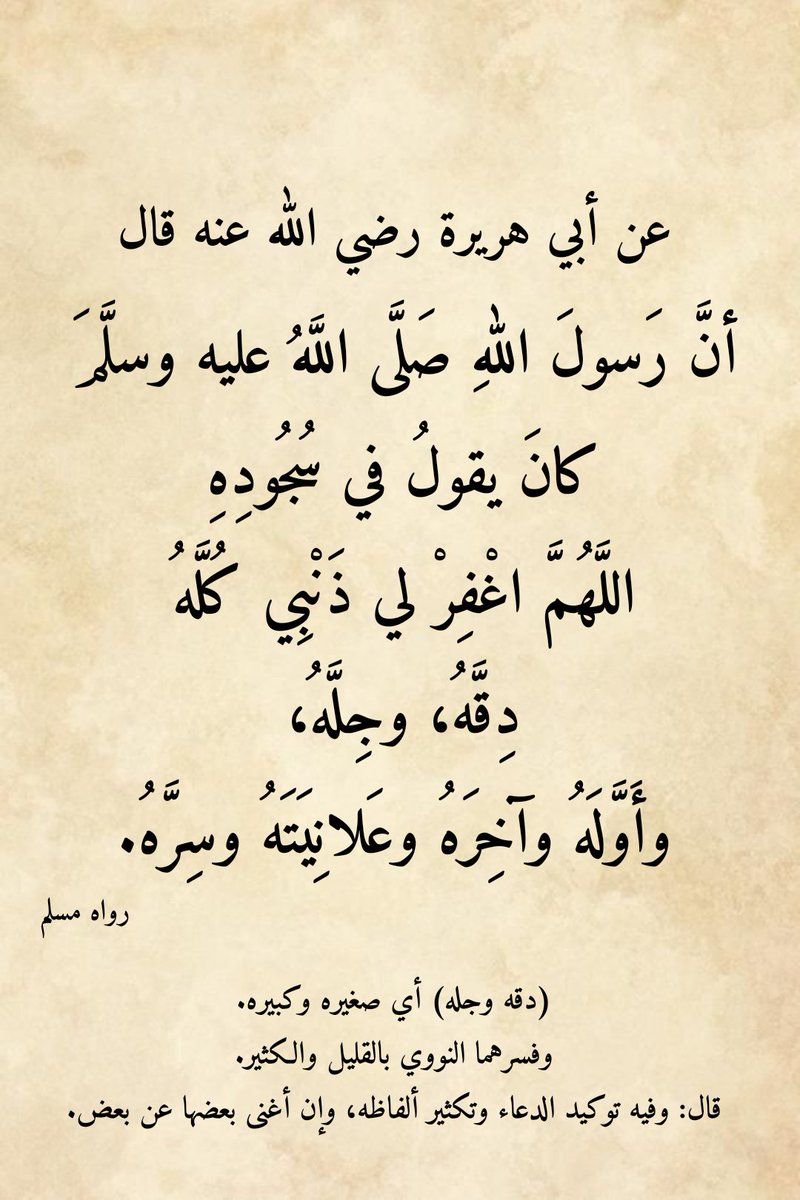 عن أبي هريرة رضي الله عنه قال
أنَّ رَسولَ اللهِ صَلَّى اللَّهُ عليه وسلَّمَ
كانَ يقولُ في سُجُودِهِ
اللَّهُمَّ اغْفِرْ لي ذَنْبِي كُلَّهُ
دِقَّهُ، وجِلَّهُ،
وأَوَّلَهُ وآخِرَهُ وعَلانِيَتَهُ وسِرَّهُ.
رواه مسلم
(دقه وجله) أي صغيره وكبيره.
وفسرهما النووي بالقليل والكثير.
قال: وفيه توكيد الدعاء وتكثير ألفاظه، وإن أغنى بعضها عن بعض.